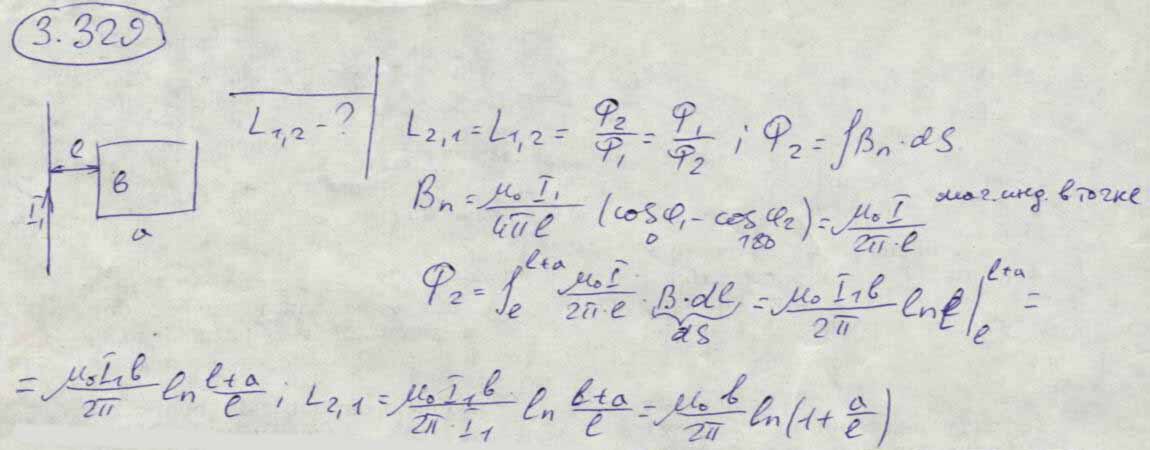 3.329
L₁,₂ - ?
L₂,₁ = L₁,₂ = Φ₂/Φ₁ = Φ₁/Φ₂ ; Φ₂ = ∫Bₙ·dS
l
в
a
I₁
Bₙ = μ₀I₁/4πl (cosφ₁ - cosφ₂) = μ₀I/2π·l маг. инд. в точке
0 180
Φ₂ = ∫ₗˡ⁺ᵃ μ₀I/2π·l · B·dl = μ₀I₁в/2π ln l |ₗˡ⁺ᵃ =
dS
= μ₀I₁в/2π ln l+a/l ; L₂,₁ = μ₀I₁в/2π·I₁ ln в+a/l = μ₀в/2π ln(1 + a/l)